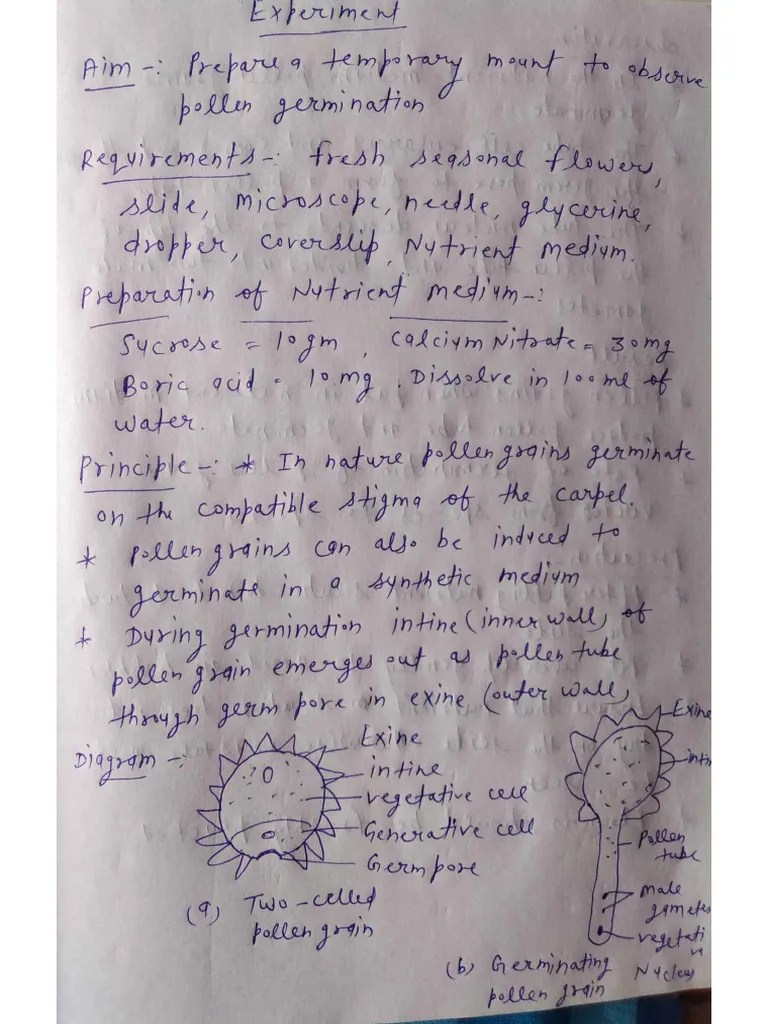 Experiment
Aim -: Prepare a temporary mount to observe
pollen germination
Requirements -: fresh seasonal flowers,
slide, microscope, needle, glycerine,
dropper, coverslip, Nutrient medium.
Preparation of Nutrient medium -:
Sucrose = 10gm, Calcium Nitrate = 30mg
Boric acid = 10mg. Dissolve in 100ml of
water.
Principle -: * In nature pollen grains germinate
on the compatible stigma of the carpel.
* Pollen grains can also be induced to
germinate in a synthetic medium
* During germination intine (inner wall) of
pollen grain emerges out as pollen tube
through germ pore in exine (outer wall)
Diagram -:
Exine
intine
vegetative cell
Generative cell
Germpore
(a) Two-celled
pollen grain
Exine
intin
Pollen
tube
male
gamete
vegetati
ve
Nucleus
(b) Germinating
pollen grain